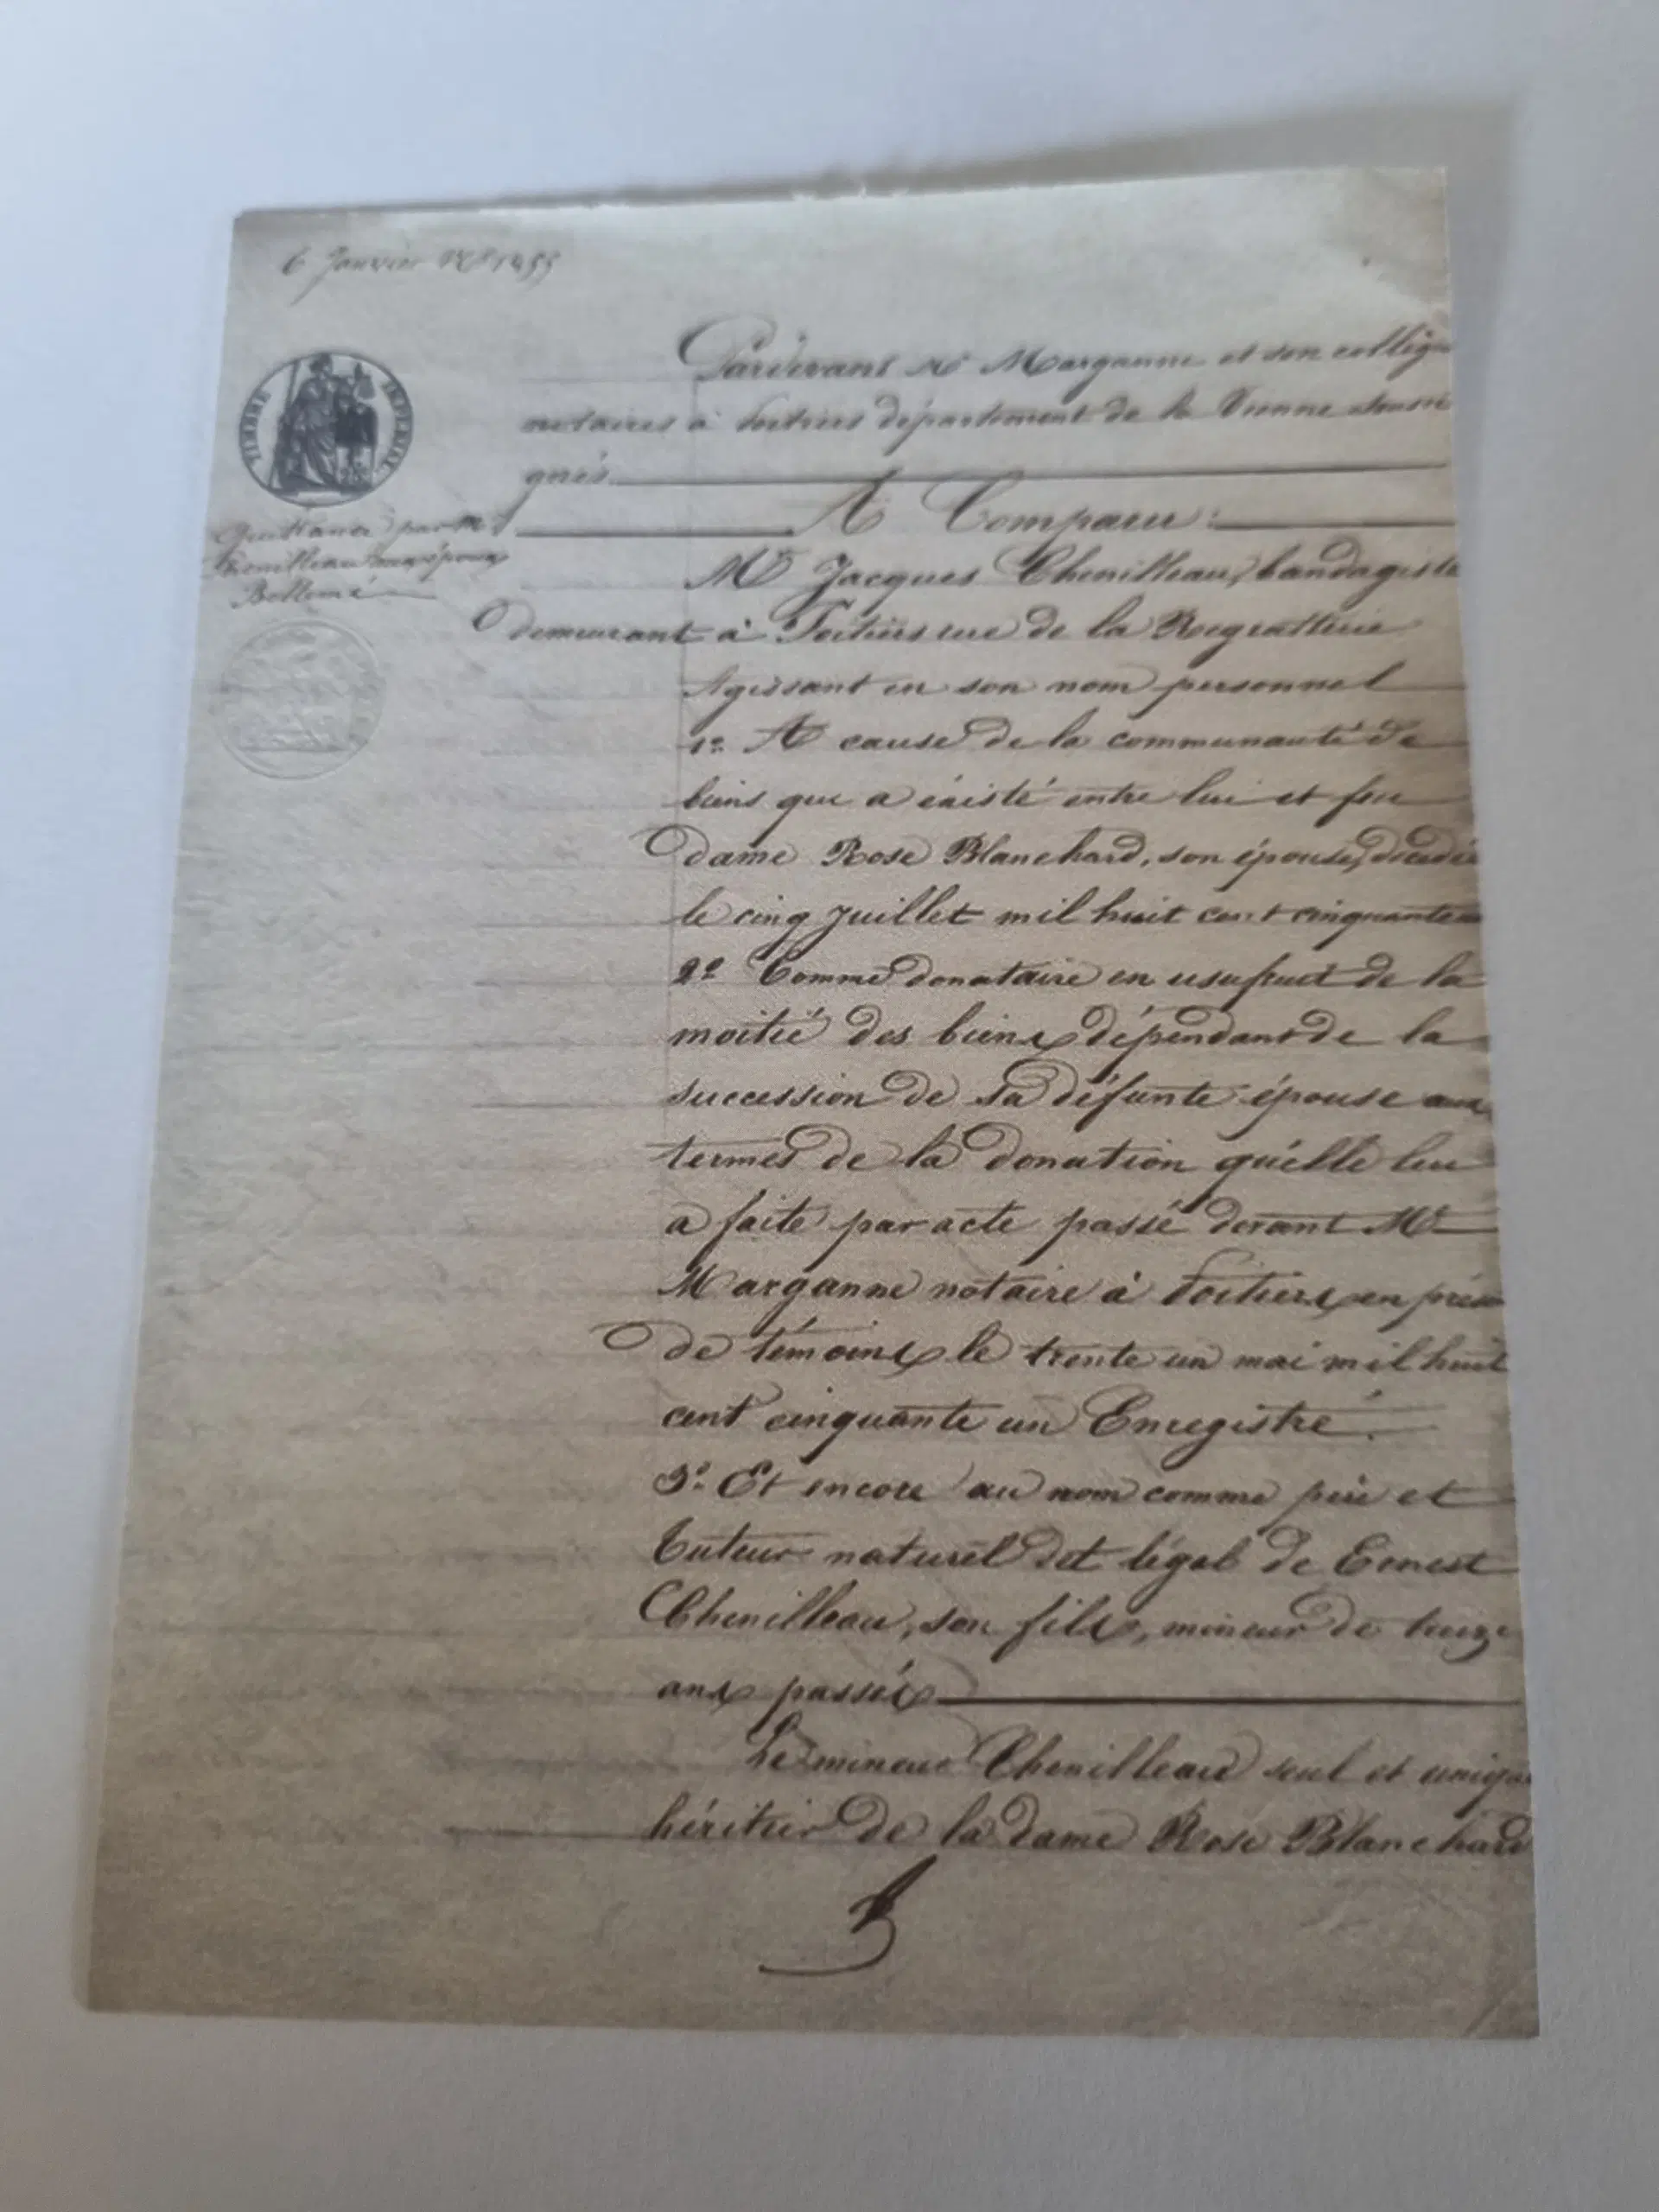 6 Janvier 1855
Pardevant Me Marganne et son collègue
notaires à Poitiers département de la Vienne soussi
gnés
A Comparu :
TIMBRE IMPERIAL
Quittance par Mr
Chenilleau aux époux
Bellomé
Mr Jacques Chenilleau, bandagiste
demeurant à Poitiers rue de la Regratterie
Agissant en son nom personnel
1o A cause de la communauté de
biens que a éxisté entre lui et feu
dame Rose Blanchard, son épouse, décedée
le cinq juillet mil huit cent cinquante
2o Comme donataire en usufruit de la
moitié des biens dépendant de la
succession de sa défunte épouse aux
termes de la donation qu'elle lui
a faite par acte passé devant Me
Marganne notaire à Poitiers en prés
de témoins le trente un mai mil huit
cent cinquante un Enregistré.
3o Et encore au nom comme père et
tuteur naturel et légal de Ernest
Chenilleau, son fils, mineur de treize
ans passés
Le mineur Chenilleau seul et unique
héritier de la dame Rose Blanchard